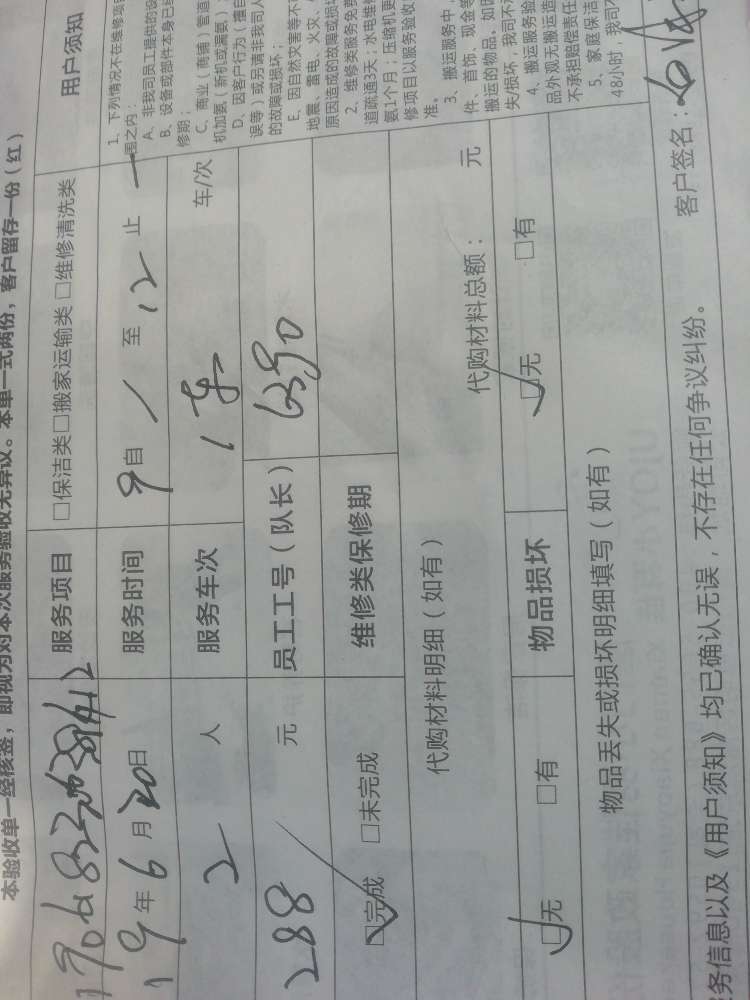 本验收单一经核签，即视为对本次服务验收无异议。本单一式两份，客户留存一份（红）
服务项目 □保洁类□搬家运输类 □维修清洗类 用户须知
19年6月20日 服务时间 9自 1 至 12 止
2 人 服务车次 1车 车/次
288 元 员工工号（队长）
☑完成 □未完成 维修类保修期
代购材料明细（如有） 代购材料总额： 元
☑无 □有 物品损坏 ☑无 □有
物品丢失或损坏明细填写（如有）
务信息以及《用户须知》均已确认无误，不存在任何争议纠纷。 客户签名：
1、下列情况不在维修
围之内：
A、非我司员工提供的设
B、设备或部件本身已经
修期；
C、商业（商铺）管道
机加氨（新机或漏氨）；
D、因客户行为（擅自
误等）或另请非我司人
的故障或损坏；
E、因自然灾害等不
地震、雷电、火灾、
原因造成的故障或损坏
2、维修类服务免费
道疏通3天；水电维修
氨1个月；压缩机更
修项目以服务验收
准。
3、搬运服务中，
件、首饰、现金等
搬运的物品，如因
失/损坏，我司不
4、搬运服务验
品外观无搬运造
不承担赔偿责任
5、家庭保洁
48小时，我司不